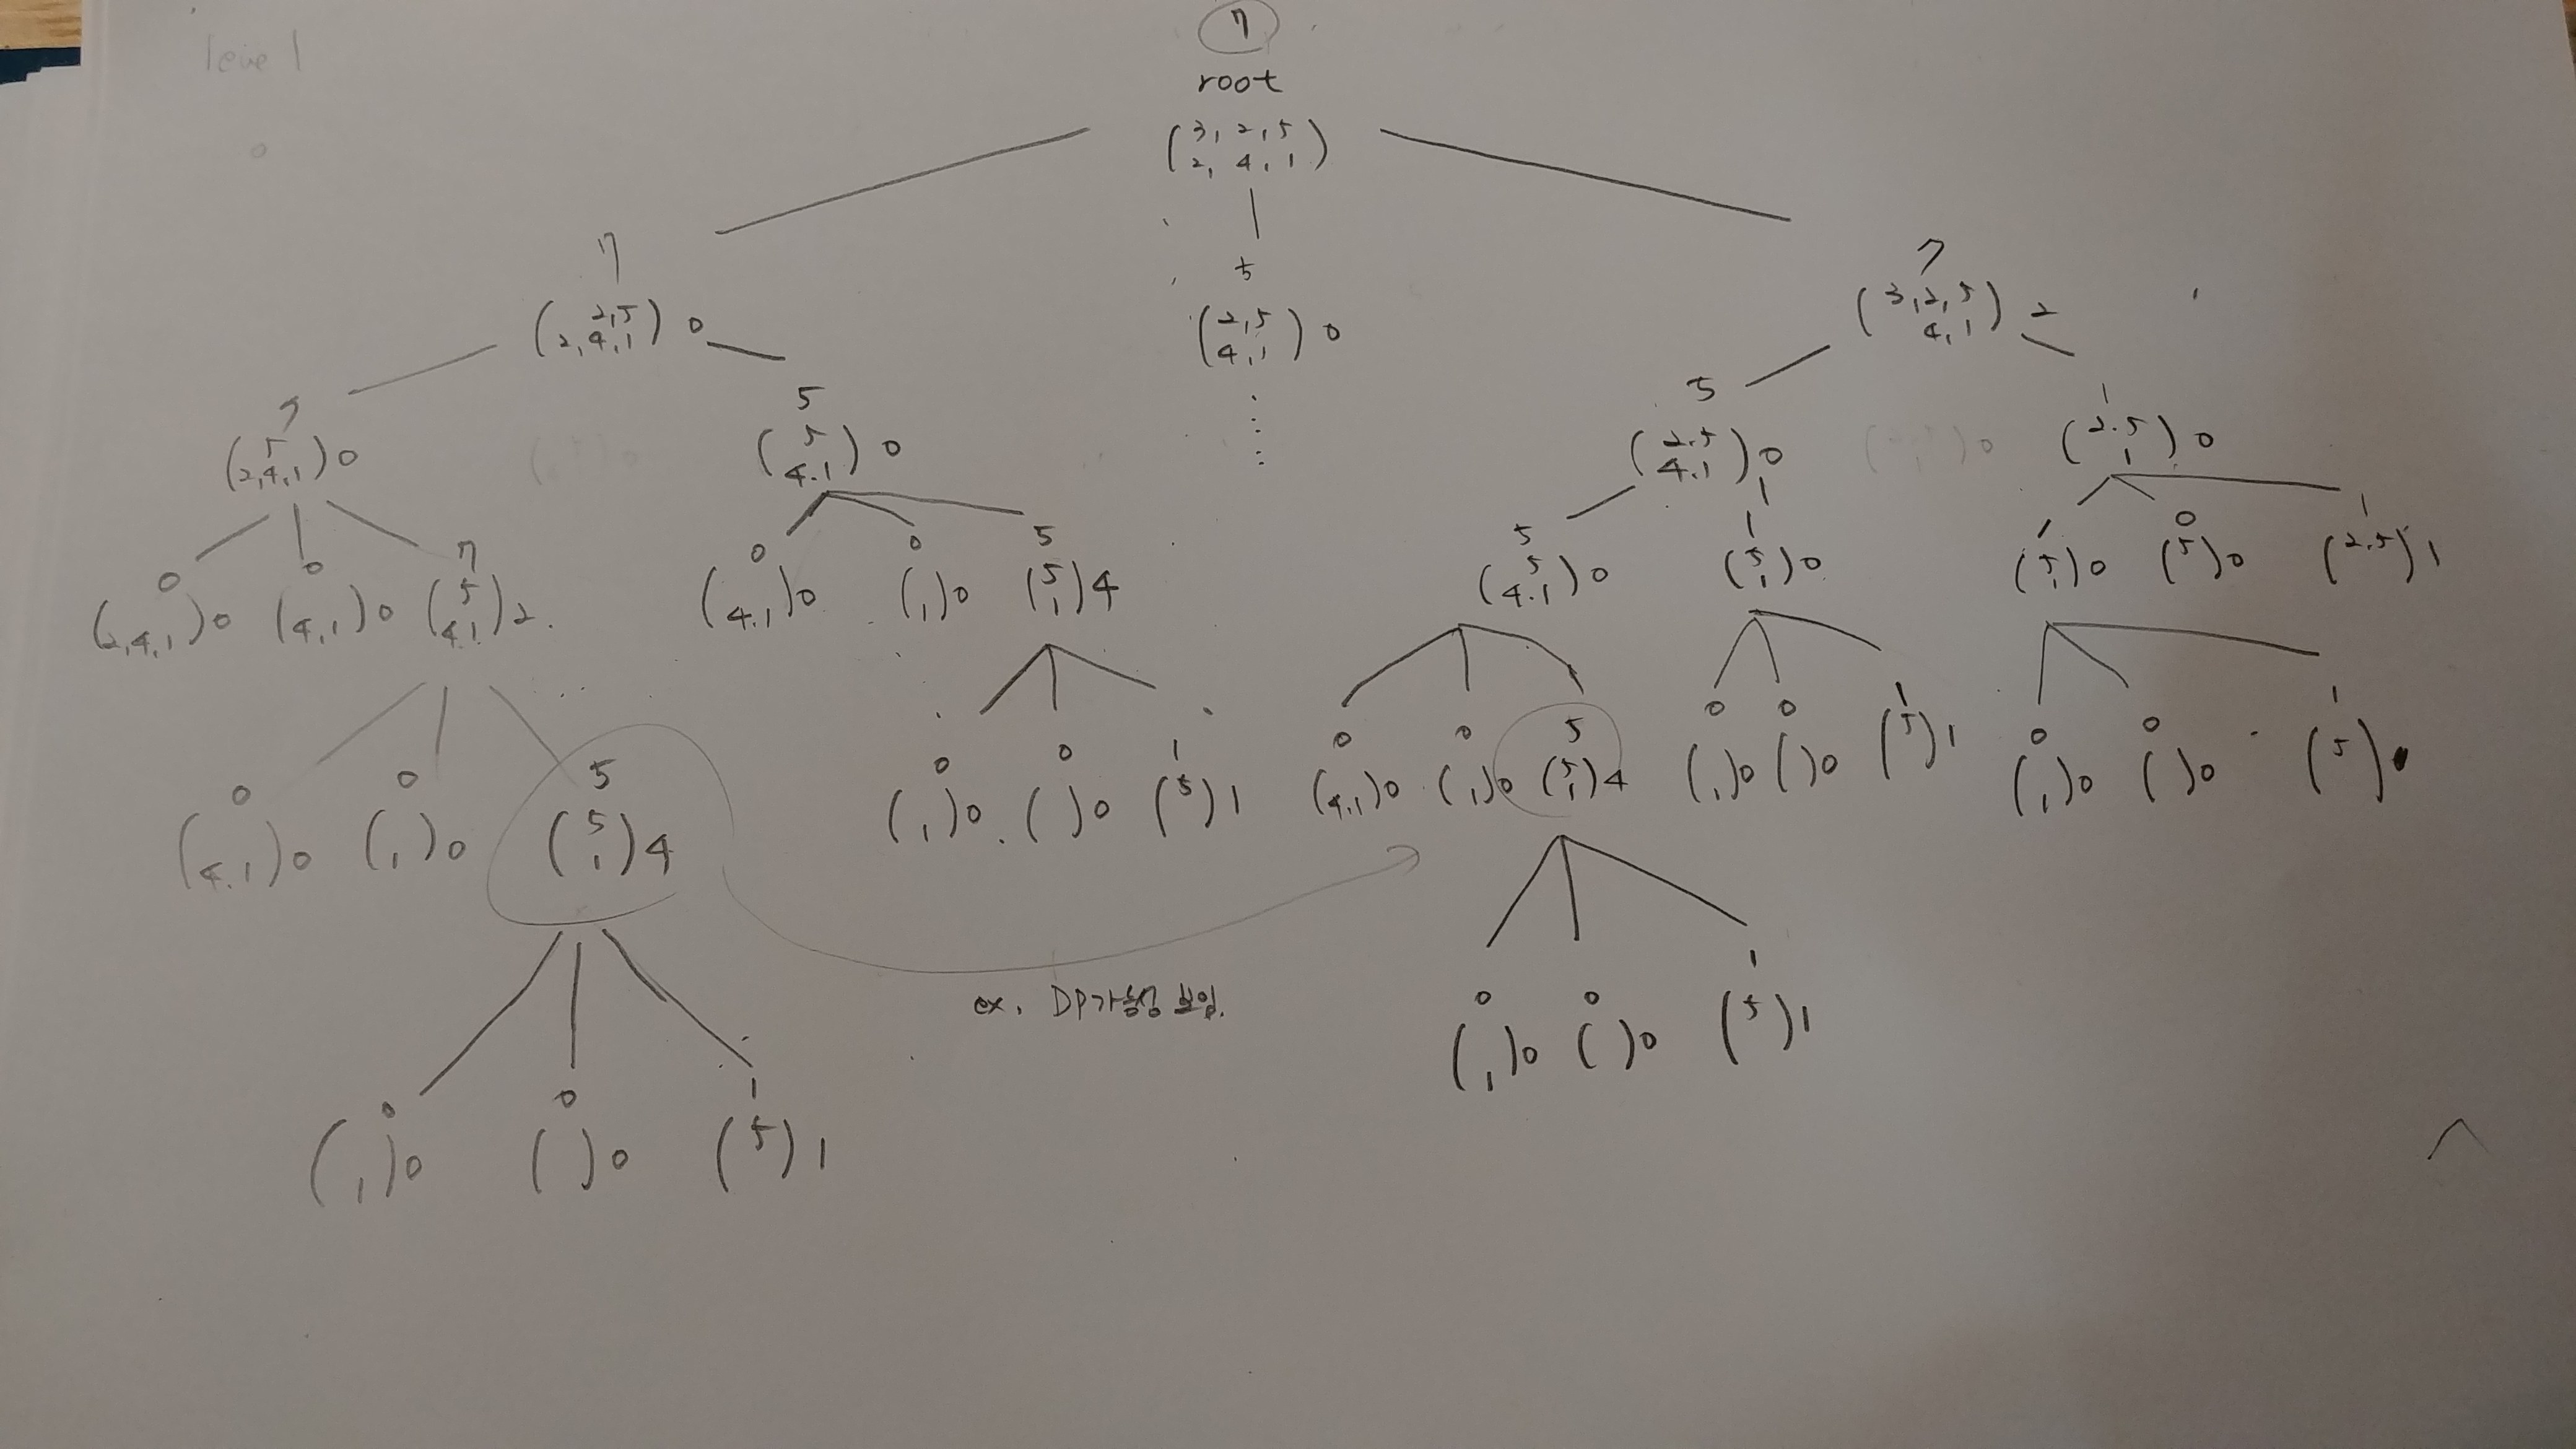 level
7
root
(3, 2, 5
2, 4, 1)
0
7
(2,5
2,4,1) 0
5
(2,5
4,1) 0
7
(3,2,5
4,1) 2
7
(5
2,4,1) 0
5
(5
4.1) 0
5
(2.5
4.1) 0
1
(2.5
1) 0
0
(2,4,1) 0
0
(4,1) 0
7
(5
4.1) 2.
0
(4.1) 0
0
(1) 0
5
(5
1) 4
5
(5
4.1) 0
1
(5
1) 0
1
(5
1) 0
0
(5) 0
1
(2.5) 1
0
(4.1) 0
0
(1) 0
5
(5
1) 4
0
(1) 0
0
( ) 0
1
(5) 1
0
(4,1) 0
0
(1) 0
5
(5
1) 4
0
(1) 0
0
( ) 0
1
(5) 1
0
(1) 0
0
( ) 0
1
(5)
ex. DP가능성 보임.
0
(1) 0
0
( ) 0
1
(5) 1
0
(1) 0
0
( ) 0
1
(5) 1